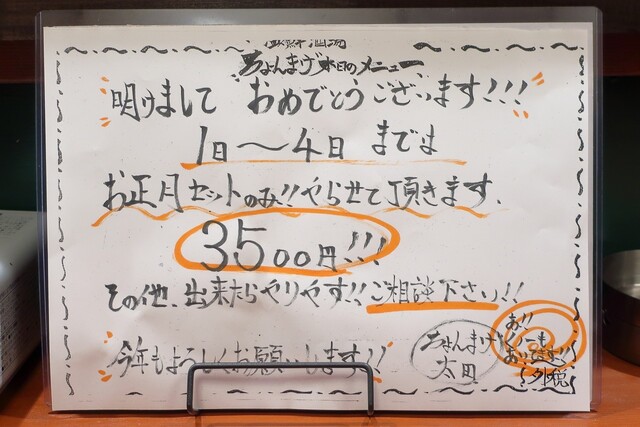 海鮮酒場
ちょんまげ 本日のメニュー
明けまして おめでとうございます!!!
1日～4日 までは
お正月セットのみ!!やらせて頂きます.
3500円!!!
その他、出来たらやりやす!!ご相談下さい!!
今年もよろしくお願いします!!
ちょんまげ
太田
あ!!
外税